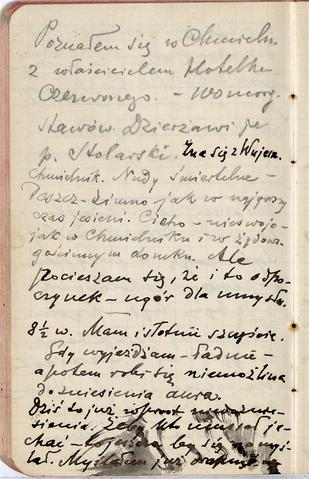 Poznałem się w Chmieln.
z właścicielem Hotelu
Czerwonego. -
Stawów. Dzierżawi je
p. Stolarski. Zna się z Wujem.
Chmielnik. Nudy śmiertelne -
Deszcz - zimno jak w najgorszy
czas jesieni. Cicho - nieswojo -
jak w Chmielniku i w żydows.
gościnnym domku. Ale
pocieszam się, że i to odpo-
czynek - ugór dla umysłu.
8 1/2 w. Mam istotnie szczęście.
Gdy wyjeżdżam - ładnie -
a potem robi się niemożliwa
do zniesienia aura.
Dziś to już wprost
Żeby kto je-
chać - by się
Myślałem już